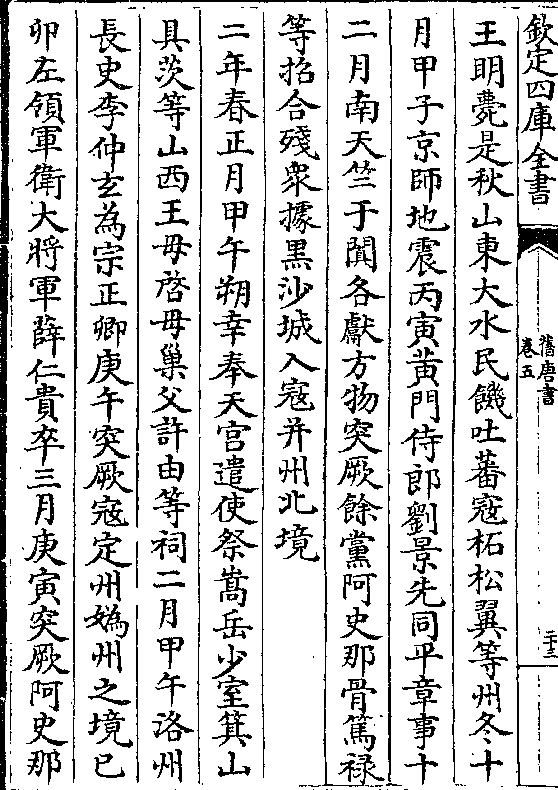 欽定四庫全書
舊唐書
卷五
二十三
王明薨是秋山東大水民饑吐蕃寇柘松翼等州冬十
月甲子京師地震丙寅黃門侍郎劉景先同平章事十
二月南天竺于闐各獻方物突厥餘黨阿史那骨篤祿
等招合殘衆據黑沙城入寇并州北境
二年春正月甲午朔幸奉天宮遣使祭嵩岳少室箕山
具茨等山西王母啓母巢父許由等祠二月甲午洛州
長史李仲玄為宗正卿庚午突厥寇定州媯州之境已
卯左領軍衛大將軍薛仁貴卒三月庚寅突厥阿史那